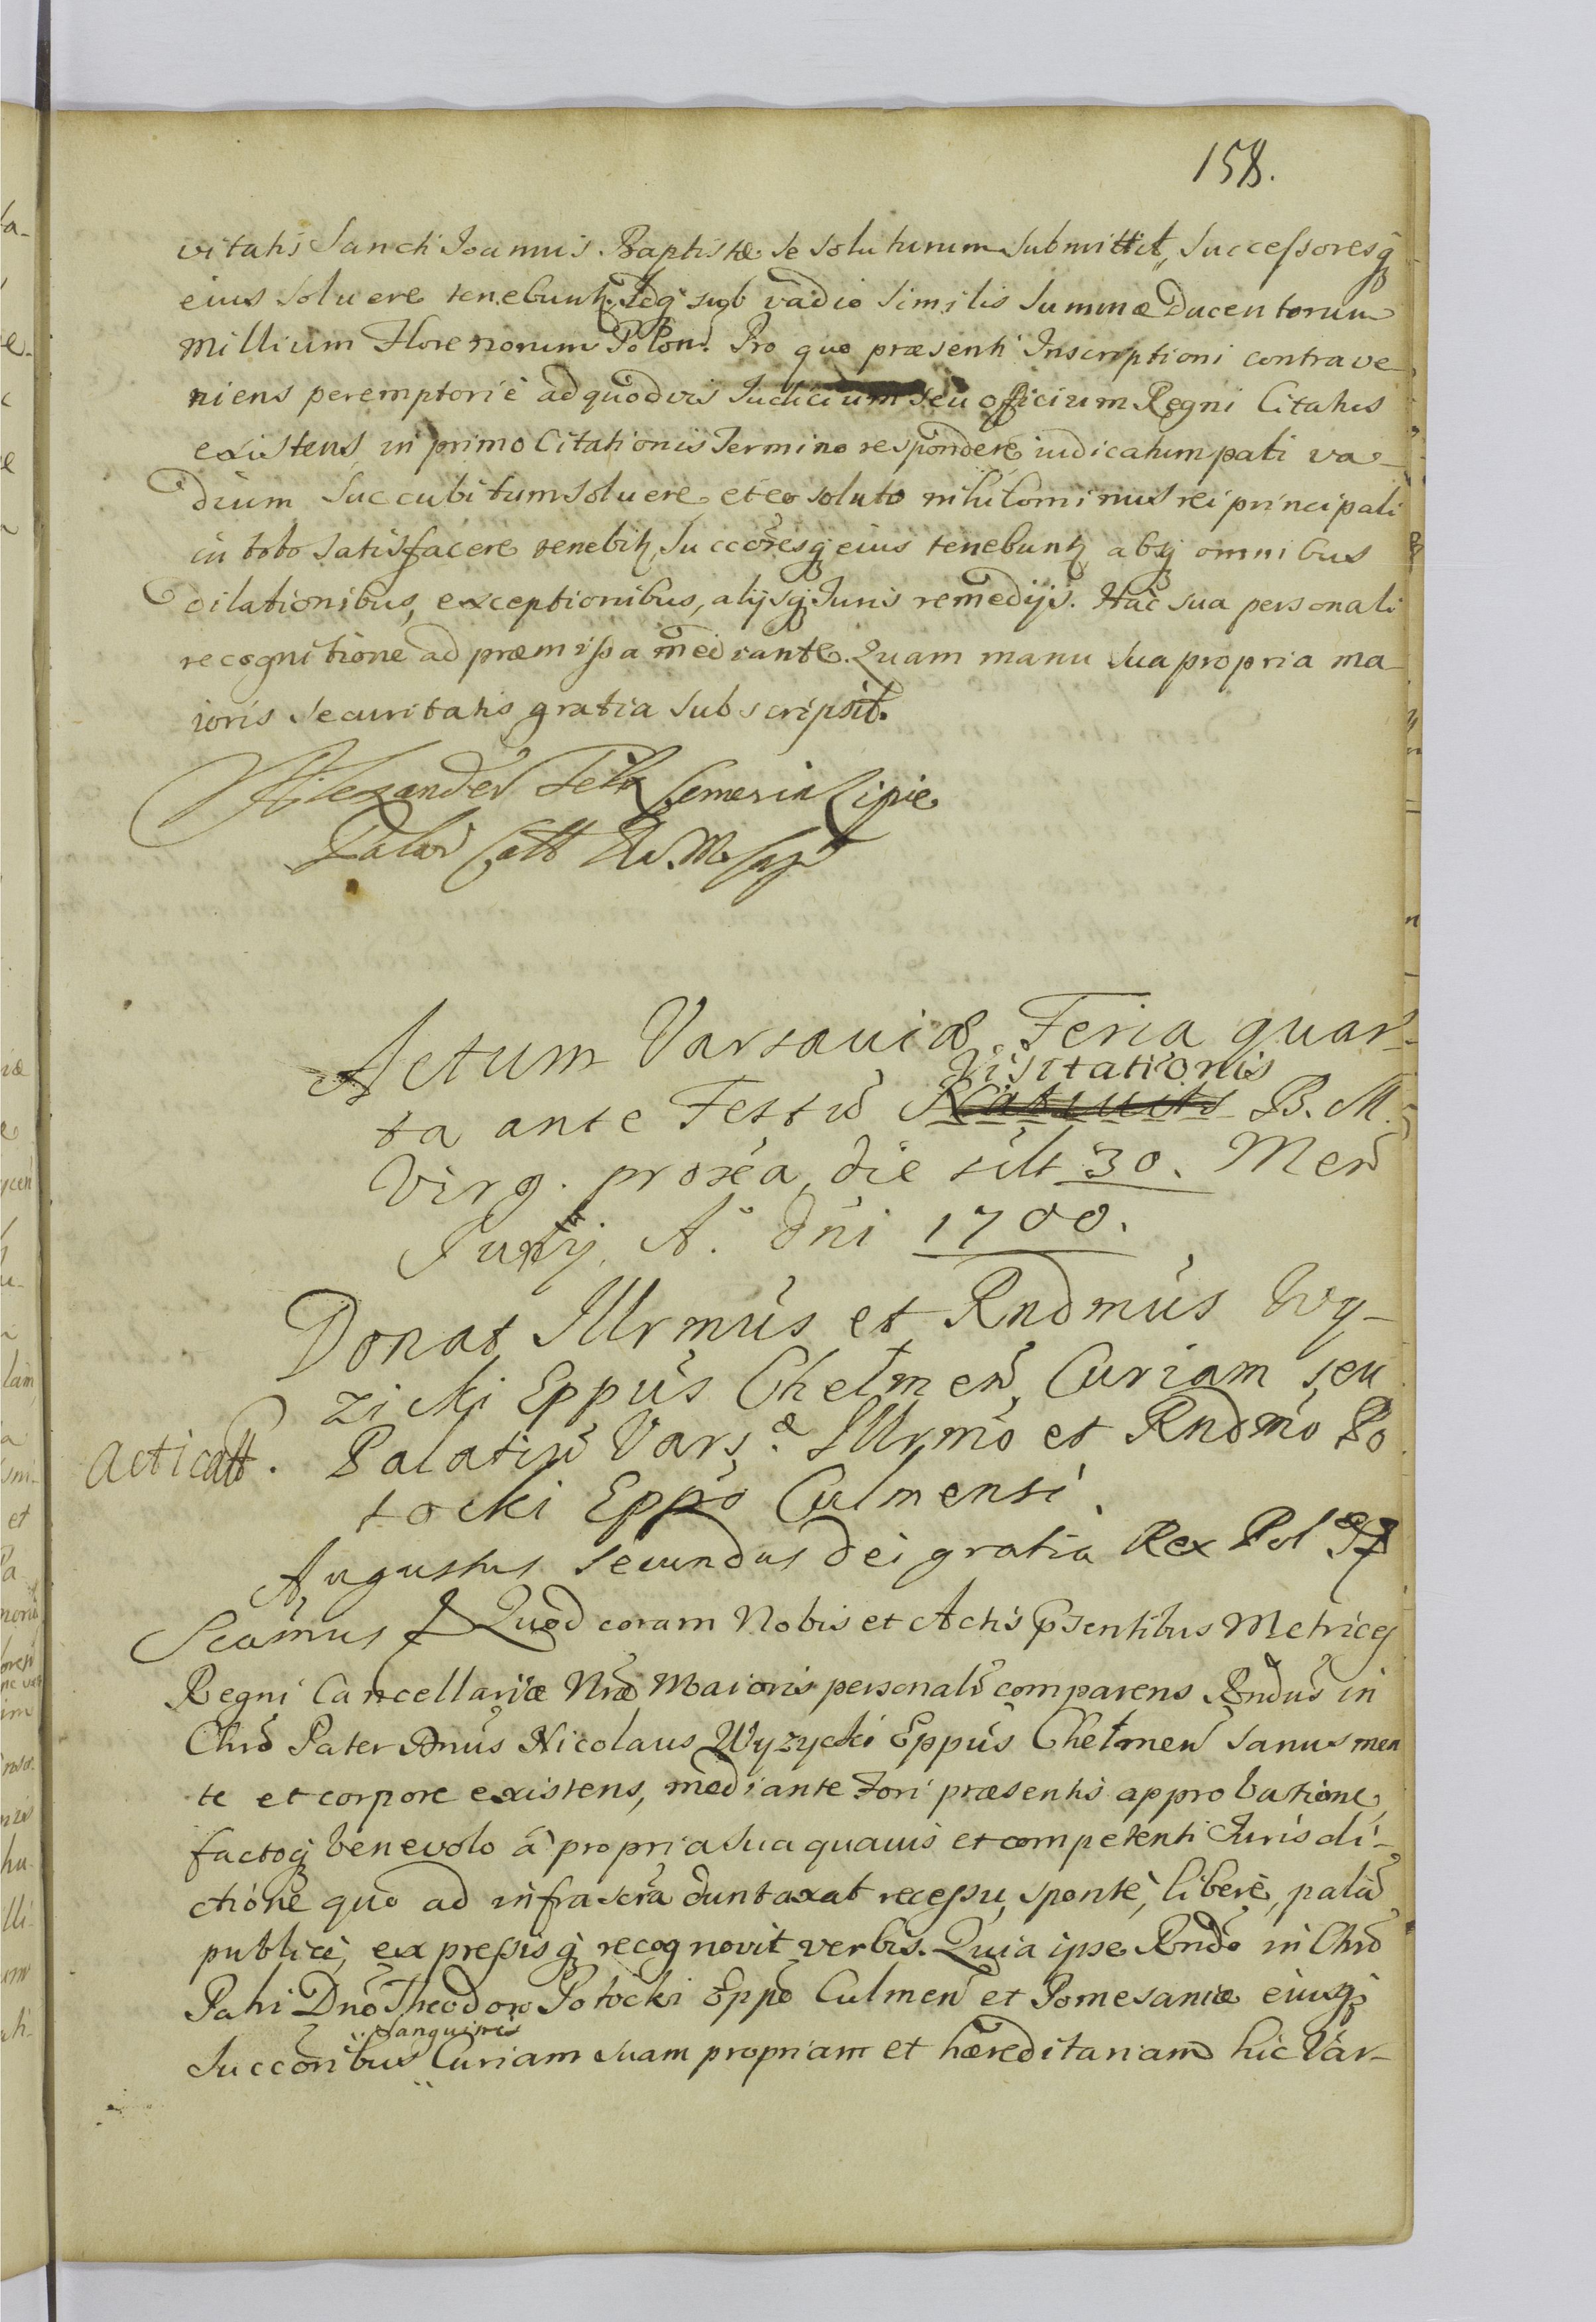 158.
vitatis Sancti Joannis Baptistæ se soluturum submittit, Successoresq
eius soluere tenebunt. Idq sub vadio similis summæ Ducentorum
Millium Florenorum Polon. Pro quo præsenti Inscriptioni contrave
niens peremptoriè ad quodvis Judicium seu officium Regni Citatus
existens, in primo Citationis Termino respondere, iudicatum pati va-
dium succubitum soluere, et eo soluto nihilominus rei principali
in toto satisfacere tenebit, Succóresq eius tenebunt, absq omnibus
dilationibus, exceptionibus, alijsq Juris remedijs. Hac sua personali
recognitione ad præmissa mediante. Quam manu sua propria ma-
ioris securitatis gratia subscripsit.
Alexander Felix Lipie
Actum Varsauiæ Feria quar-
Visitationis
ta ante Festũ Natiuits B. M.
Virg. proxa, die scilt 30. Men̄
Junij A. Dñi 1700.
Donat Illrmus et Rndmus Wy-
zicki Eppus Chełmen̄, Curiam seu
Acticatt. Palatiũ Vars.æ Illrmo et Rndmo Po
tocki Eppo Culmensi.
Augustus Secundus Dei gratia Rex Pol
Scamus Quod coram Nobis et Actis Psentibus Metrices
Regni Cancellariæ Nræ Maioris personalr comparens Rndus in
Chro Pater Dnus Nicolaus Wyzycki Eppus Chełmen̄ sanus men
te et corpore existens, mediante Fori præsentis approbatione,
factoq benevolo à propria sua quauis et competenti Jurisdi-
ctione quo ad infrascra duntaxat recessu, sponte, liberè, palã
publicè, expressisq recognovit verbis. Quia ipse Rndo in Chro
Patri Dno Theodoro Potocki Eppo Culmen̄ et Pomesaniæ eiusq
Sanguinis
Succoribus Curiam suam propriam et hæreditariam hic Var-